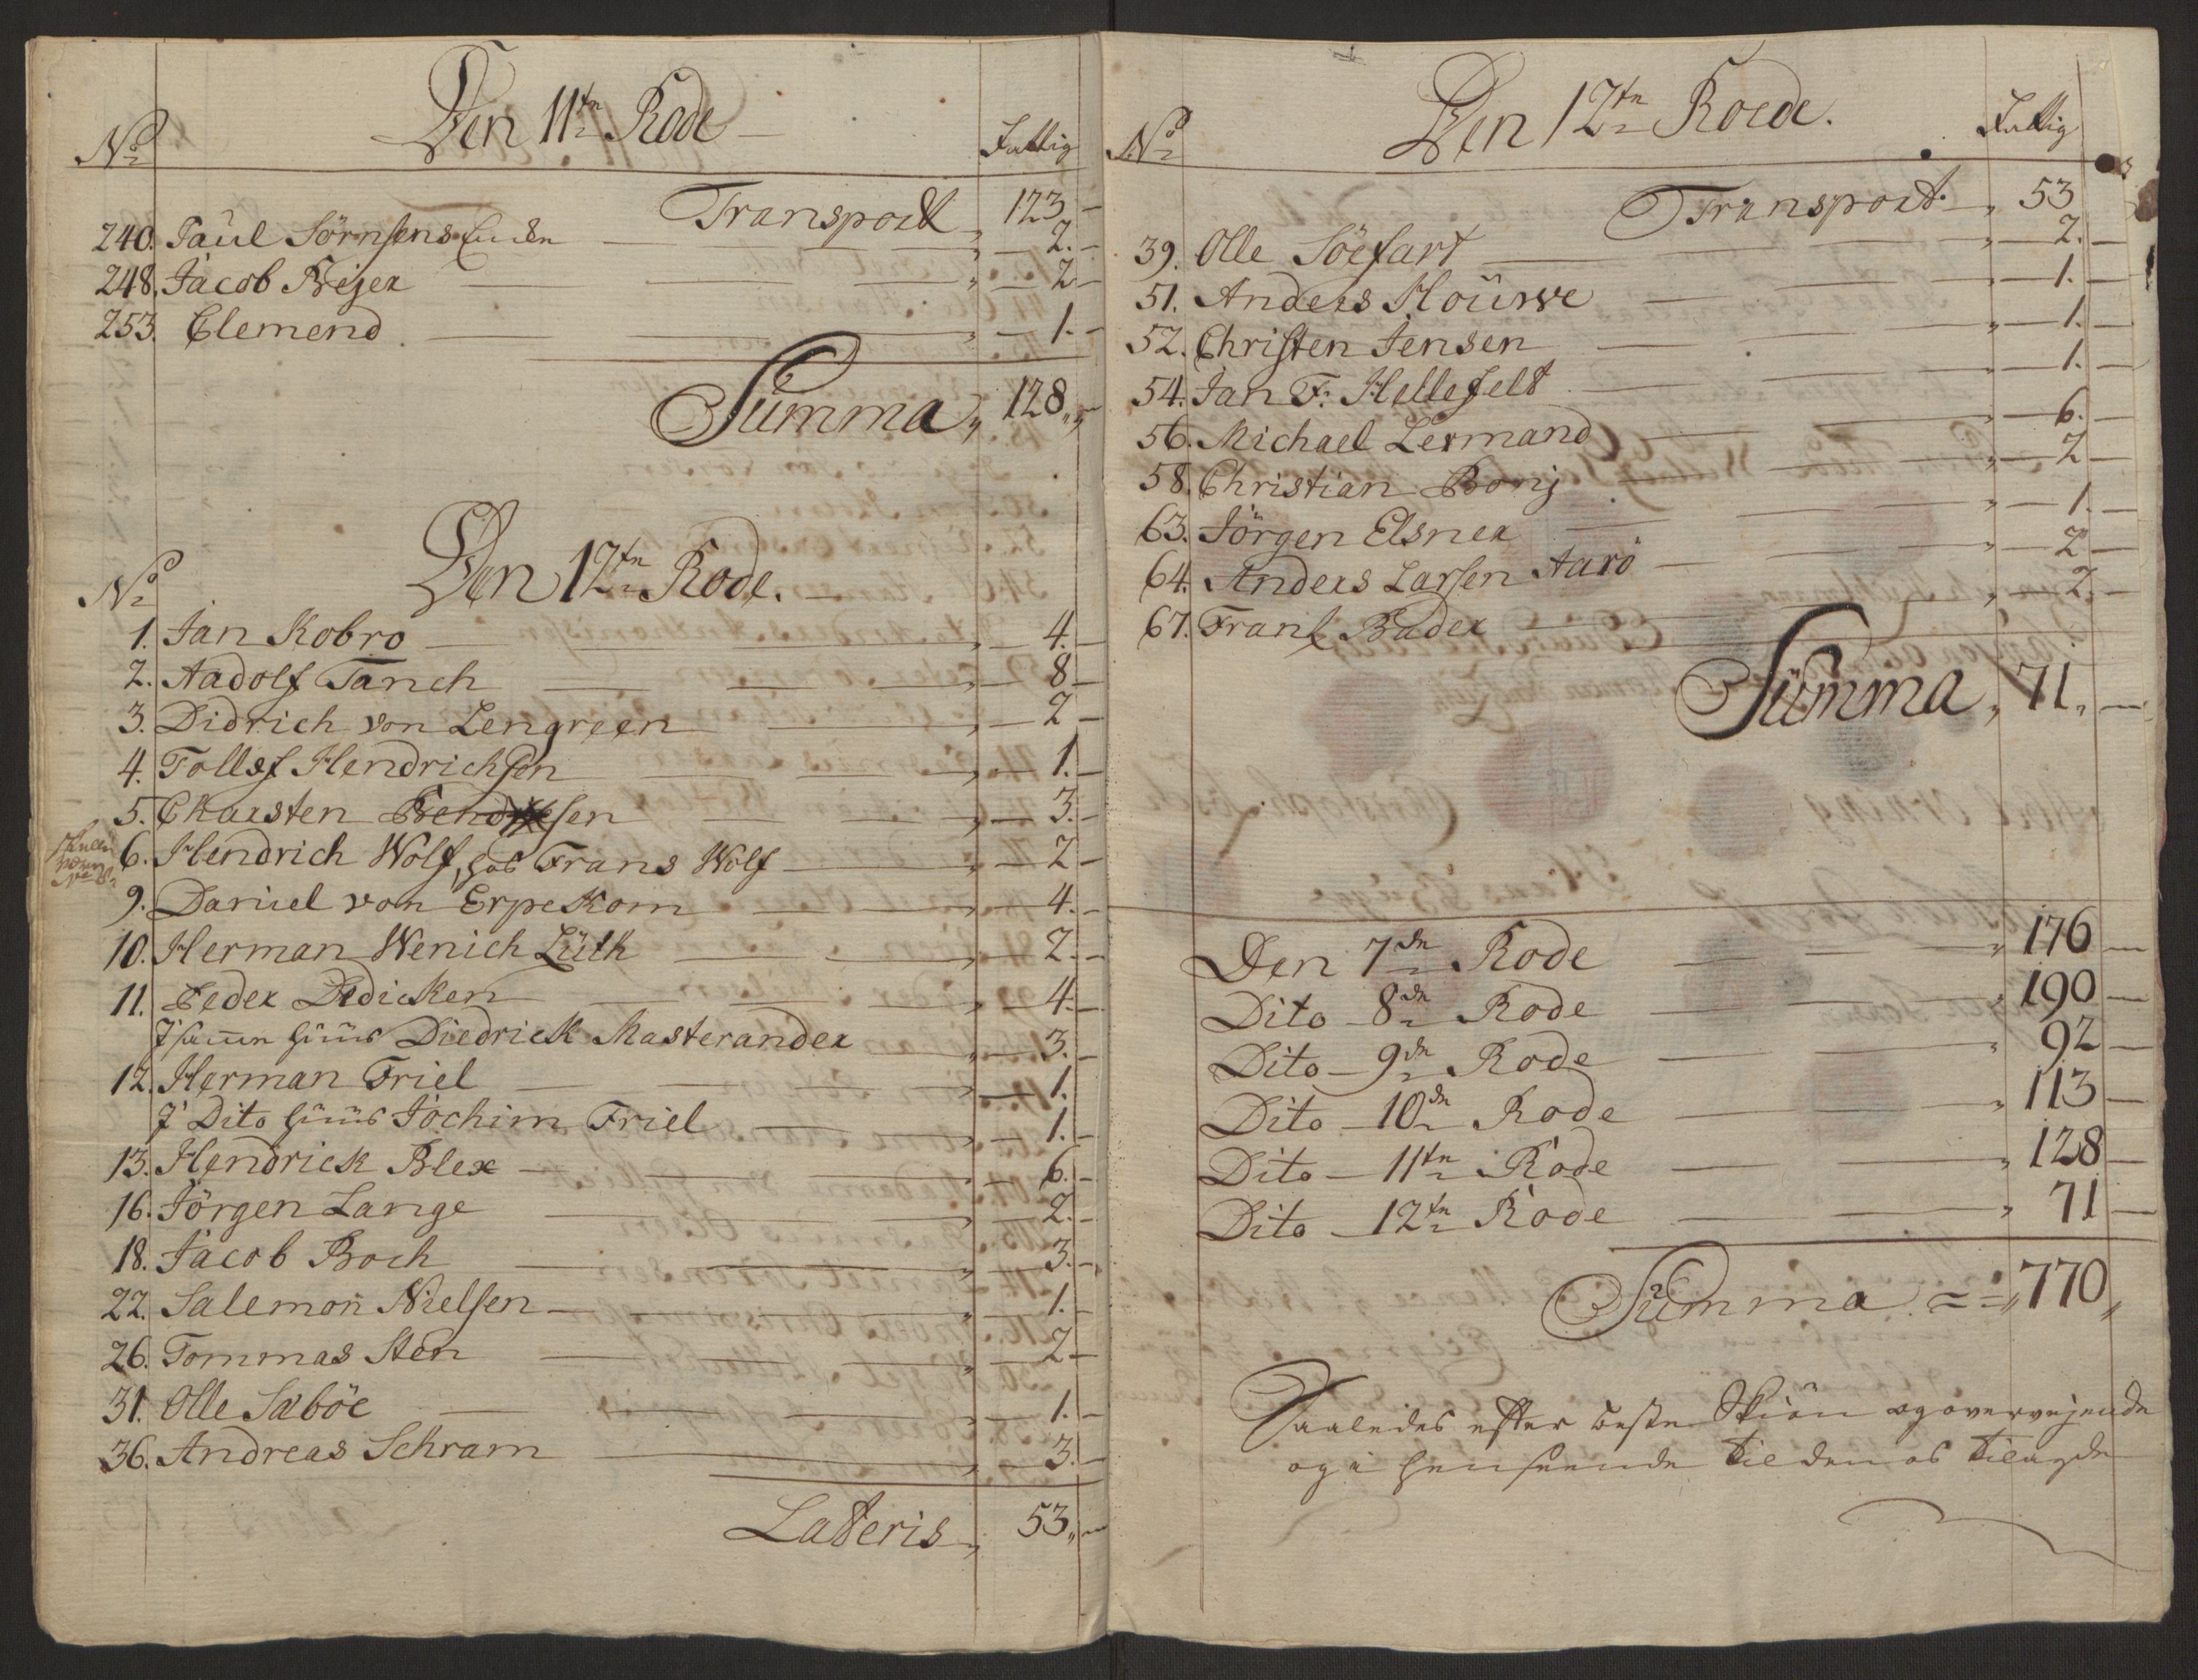 Den 11tn Rode
No
Fattig
Transport 123 -
240. Paul Sörnsens Encke 2. -
248. Jacob Beyer 2 -
253. Clemend 1. -
Summa 128 -
Den 12tn Rode.
No
1. Jan Kobro 4. -
2. Aadolf Tanch 8 -
3. Didrich von Lengreen 2 -
4. Tollef Hendrichsen 1. -
5. Charsten sen 3. -
6. Hendrich Wolf, hos Frans Wolf 2 -
9. Daniel von Erpekom 4. -
10. Herman Wenich Lüth 2. -
11. Peder Dedicken 4. -
J samme Huus Diedrick Masterander 3. -
12. Herman Friel 1.
J Dito Huus Jochim Friel 1. -
13. Hendrick Blex 6. -
16. Jörgen Lange 2. -
18. Jacob Boch 3. -
22. Salemon Nielsen 1. -
26. Tommas Sten 2 -
31. Olle Sabóe 1. -
36. Andreas Schram 3. -
Lateris 53 -
Den 12tn Roede.
No
Fattig
Transport 53
39. Olle Söefart 2. -
51. Anders Hourve 1. -
52. Christen Jensen 1. -
54. Jan F: Hellefelt 1. -
56. Michael Lermand 6. -
58. Christian Bonj 2 -
63. Jörgen Elsner 1. -
64. Anders Larsen Aarö 2 -
67. Frans Bader 2. -
Summa 71 -
Den 7de Rode 176 -
Dito 8de Rode 190 -
Dito 9de Rode 92 -
Dito 10de Rode 113 -
Dito 11tn Rode 128 -
Dito 12tn Rode 71 -
Summa 770
Saaledes efter beste Skiön og overvejende
og i henseende til den os tilagde